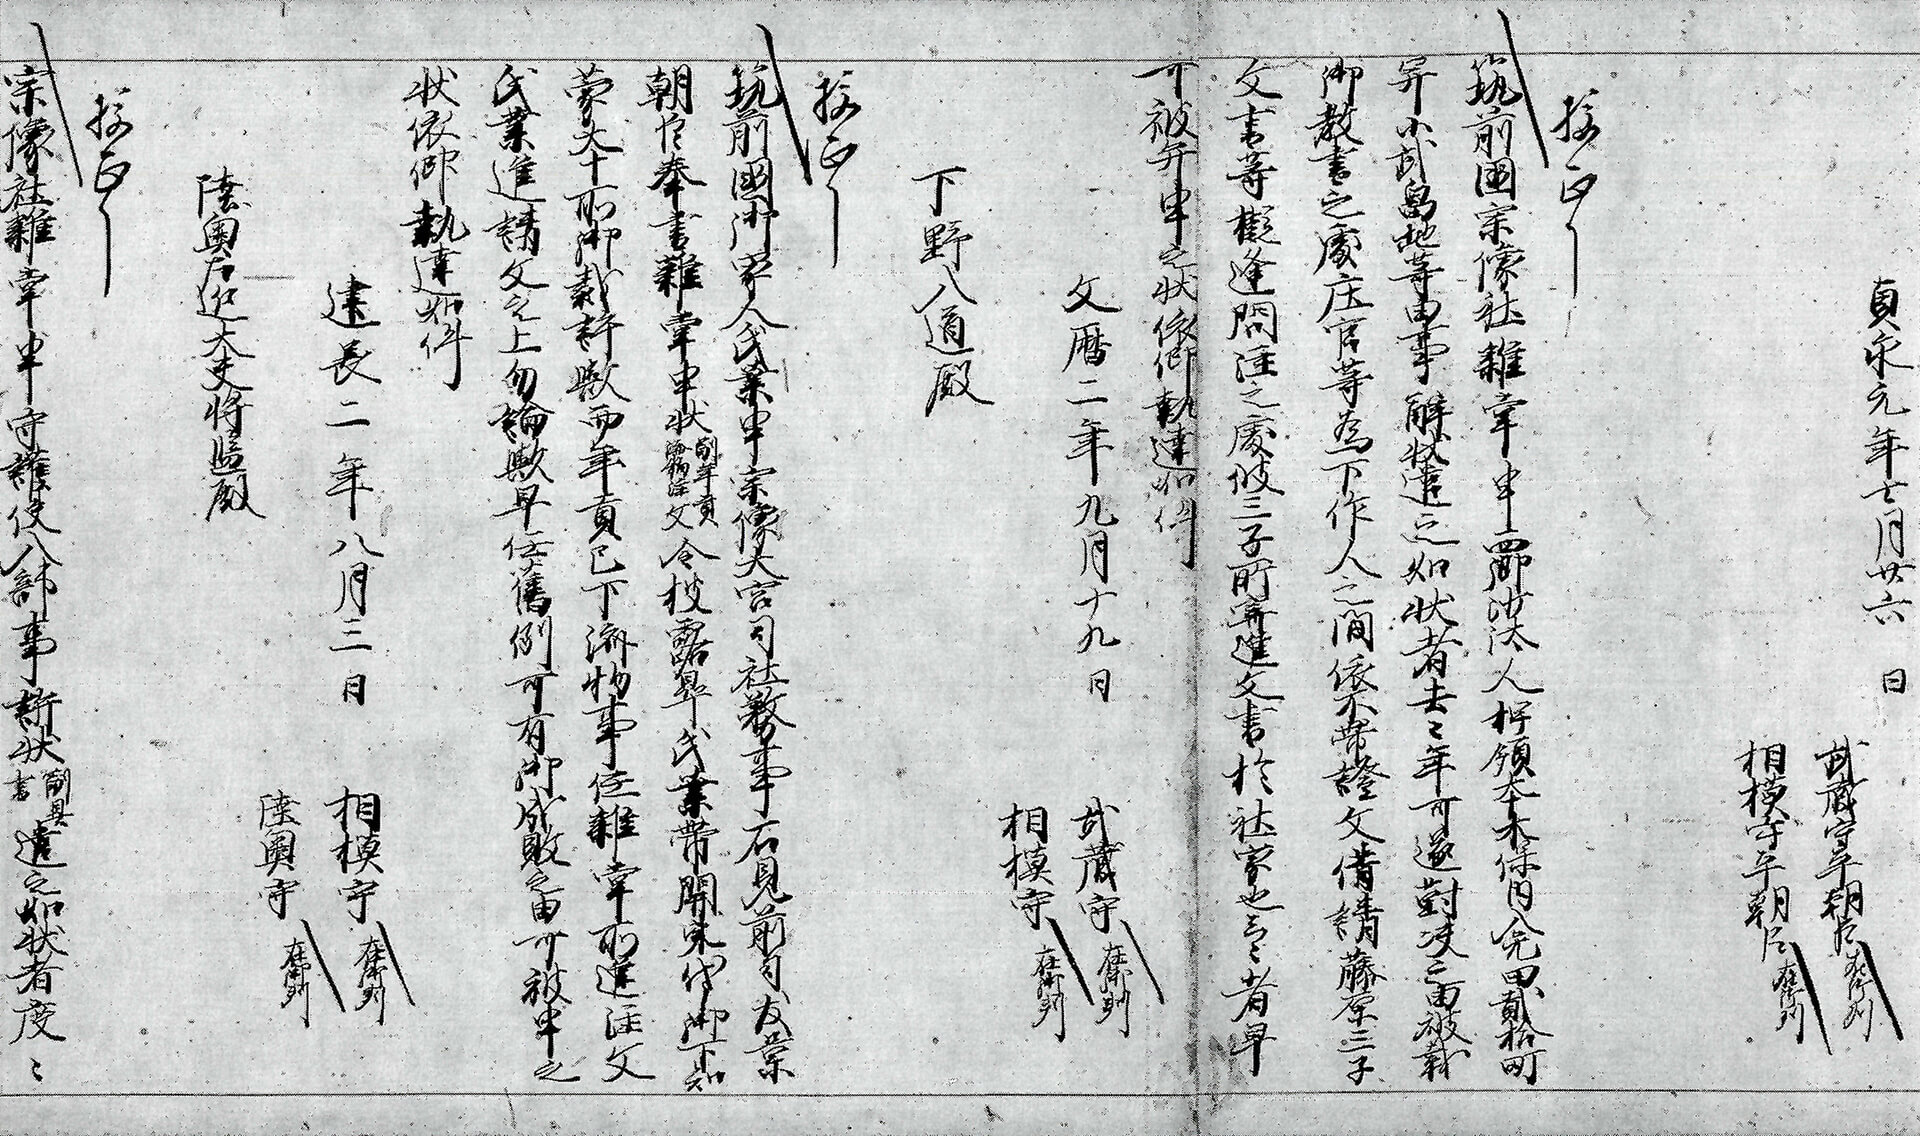 貞永元年七月廿六日
武蔵守平朝臣在御判
相模守平朝臣在御判
校正了
筑前國宗像社雜掌申節汰人押領大十木保内分免田貳拾町
并小武嶋地等由事解状遣之如状者去々年可遂對决之由被載
御教書之處庄官等為下作人之間依不帯證文借請藤原三子
文書等擬逢問注之處彼三子所寄進文書於社家也云々者早
可被弁申之状依仰執達如件
文暦二年九月十九日
武蔵守在御判
相模守在御判
下野入道殿
校正了
筑前國御家人氏業申宗像大宮司社務事石見前司友業
朝臣奉書雜掌申状副年貢済物注文令披露畢氏業帯關東代々御下知
蒙大十所御裁許歟而年貢已下濟物事任雜掌所進注文
氏業進請文之上勿論歟早任舊例可有御成敗之由可被申之
状依仰執達如件
建長二年八月三日
相模守在御判
陸奥守在御判
陸奥左近大夫将監殿
校正了
宗像社雜掌申守護使入部事訴状副具書遣之如状者度々